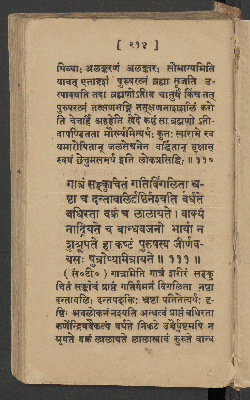 [ २१४ ]
थिव्याः अलङ्करणं अलङ्कारः सौभाग्यमिति
यावत् एतादृशं पुरुषरत्नं ब्रह्मा सृजति उ-
त्पादयति तदा ब्रह्मणोऽतीव चातुर्यं किंच तत्
पुरुषरत्नं तत्क्षणभङ्गि तत्क्षणनाशशीलं करो
ति चेत्तर्हि अहहेति खेदे कष्टं सा ब्रह्मणो ऽती-
वापण्डितता मौर्ख्यमित्यर्थः कुतः स्वारामे स्व
यमारोपितान् जलसेचनेन वर्द्धितान् वृक्षान्
स्वयं छेत्तुमसमर्थ इति लोकप्रसिद्धिः ॥ ११०
गात्रं सङ्कुचितं गतिर्विगलिता भ्र-
ष्टा च दन्तावलिर्दृष्टिर्नश्यति वर्धते
बधिरता वक्त्रं च लालायते । वाक्यं
नाद्रियते च बान्धवजनो भार्या न
शुश्रूषते हा कष्टं पुरुषस्य जीर्णव-
यसः पुत्रोप्यमित्रायते ॥ १११ ॥
( सं० टी० ) गात्रमिति गात्रं शरीरं सङ्कु
चितं सङ्कोचं प्राप्तं गतिर्गमनं विगलिता नष्टा
दन्तावलिः दन्तपङ्क्तिः भ्रष्टा पतितेत्यर्थः दृ-
ष्टिः अवलोकनं नश्यति अन्धत्वं प्राप्तं बधिरता
कर्णेन्द्रियवैकल्यं वर्धते निकटे उच्चैर्घुष्टमपि न
श्रूयते वक्त्रं लालायते लालास्रावं कुरुते बान्ध